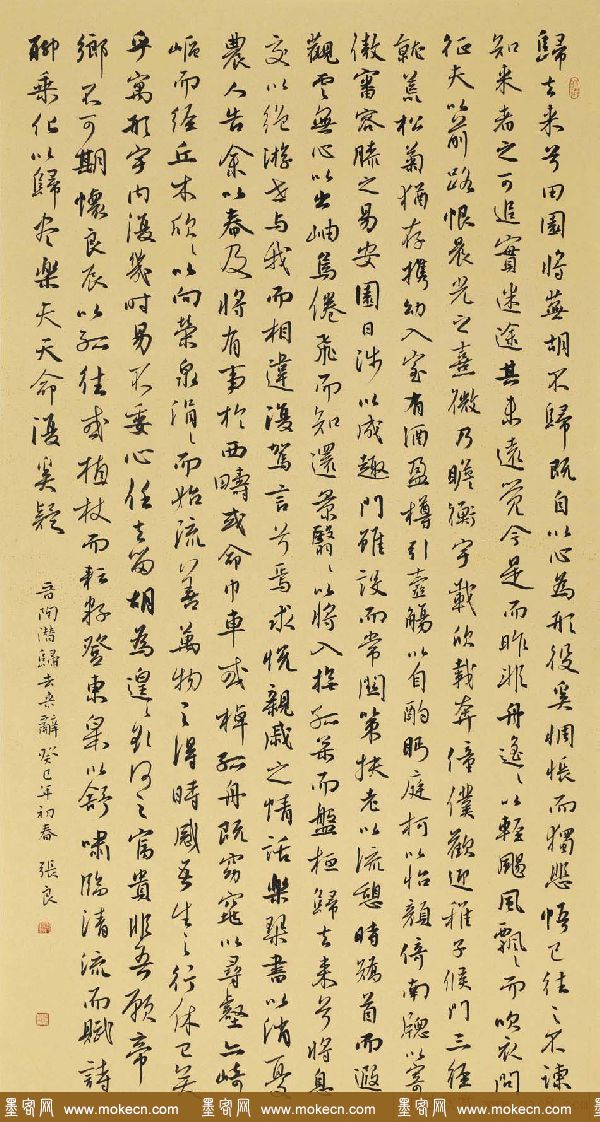 歸去来兮田園将蕪胡不歸既自以心為形役奚惆悵而獨悲悟已往之不諫
知来者之可追實迷途其未遠覺今是而昨非舟遙〻以輕颺風飄〻而吹衣問
征夫以前路恨晨光之熹微乃瞻衡宇載欣載奔僮僕歡迎稚子候門三徑
就荒松菊猶存携幼入室有酒盈樽引壺觴以自酌眄庭柯以怡顏倚南牕以寄
傲審容膝之易安園日涉以成趣門雖設而常關策扶老以流憩時矯首而遐
觀雲無心以出岫鳥倦飛而知還景翳〻以将入撫孤松而盤桓歸去来兮将息
交以絕游世与我而相違復駕言兮焉求悅親戚之情話樂琴書以消憂
農人告余以春及将有事於西疇或命巾車或棹孤舟既窈窕以尋壑亦崎
嶇而經丘木欣〻以向榮泉涓〻而始流善萬物之得時感吾生之行休已矣
乎寓形宇内復幾時曷不委心任去留胡為遑〻欲何之富貴非吾願帝
鄉不可期懷良辰以孤往或植杖而耘耔登東皋以舒嘯臨清流而賦詩
聊乘化以歸盡樂夫天命復奚疑
晋陶潛歸去来辭 癸巳年初春 張良
墨客网 www.mokecn.com 墨客网 www.mokecn.com 墨客网 www.mokecn.com